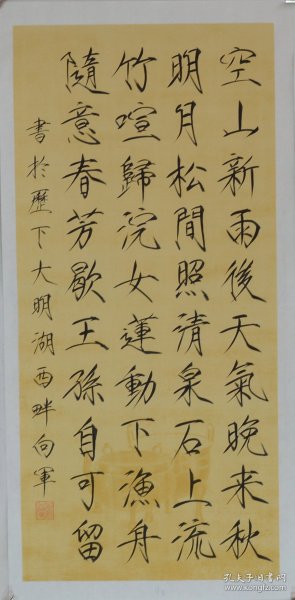 空山新雨後天氣晚来秋
明月松間照清泉石上流
竹喧歸浣女蓮動下漁舟
隨意春芳歇王孫自可留
書於歷下大明湖西畔向軍
孔夫子旧书网